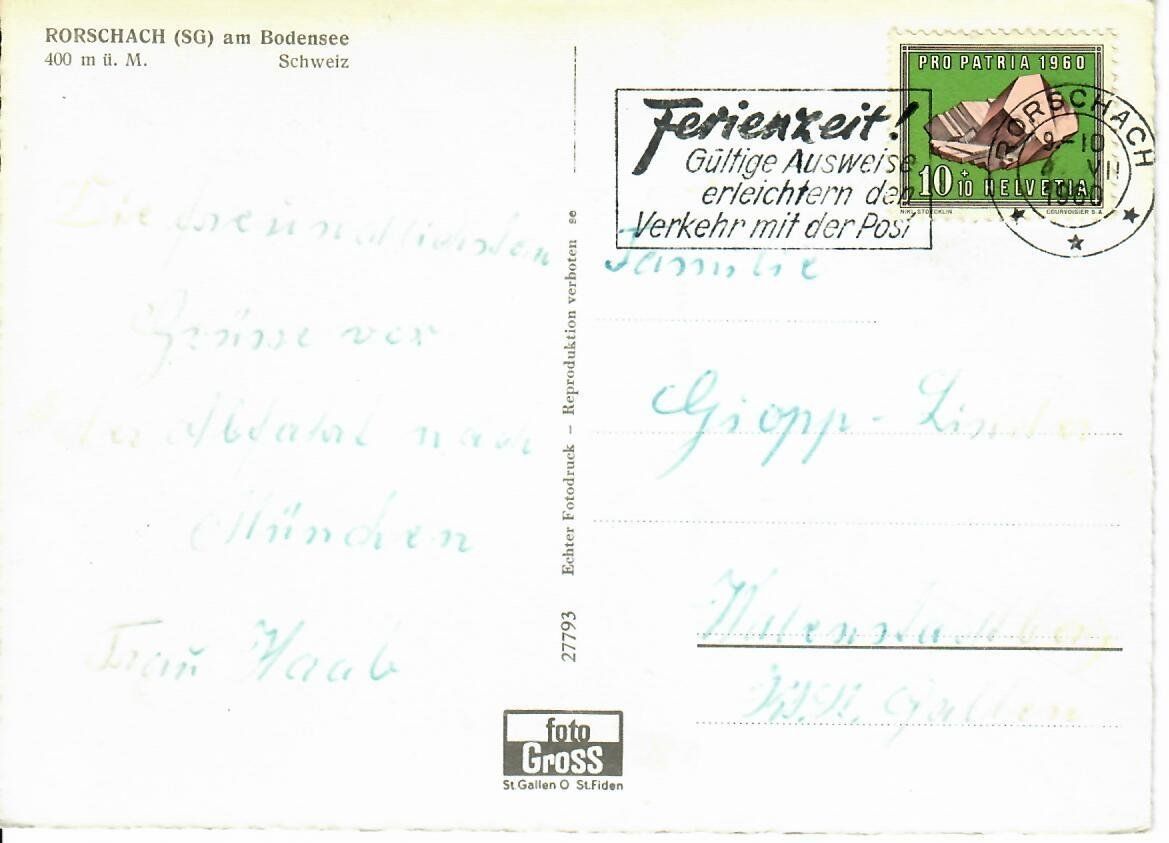 RORSCHACH (SG) am Bodensee
400 m ü. M. Schweiz
Die freundlichsten
Grüsse vor
der Abfahrt nach
München
Frau Haab
Echter Fotodruck – Reproduktion verboten se
27793
foto
Gross
St.Gallen O St.Fiden
Ferienzeit!
Gültige Ausweise
erleichtern den
Verkehr mit der Post
PRO PATRIA 1960
10+10 HELVETIA
NIKL. STOECKLIN COURVOISIER S.A.
RORSCHACH
9-10
VII
1960
Familie
Giopp-Linder
Walenstadtberg
Kt. St. Gallen